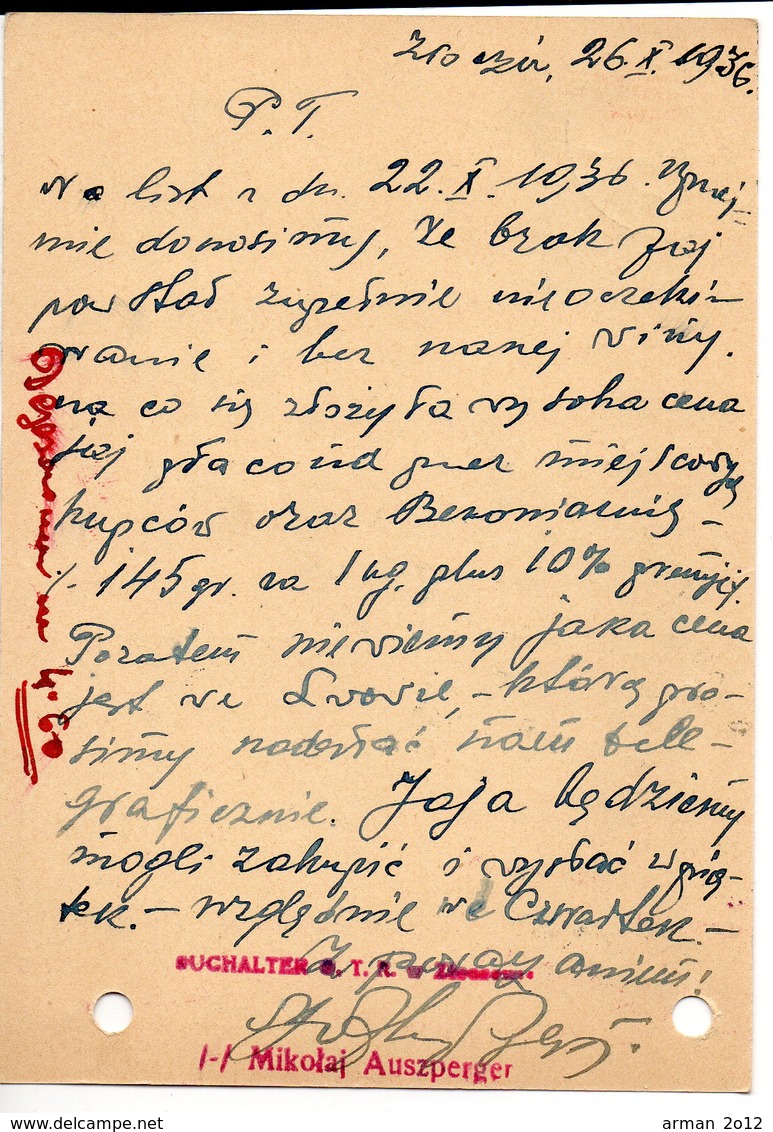 Złoczów, 26.X.1936.
P.T.
Na list z dn. 22.X.1936. uprzej=
mie donosimy, że brak jaj
powstał zupełnie nieoczeki-
wanie i bez naszej winy.
na co się złożyła wysoka cena
jaj płacona przez miejscowych
kupców oraz Bekoniarnię -
145 gr. za 1 kg. plus 10% premji.
Pozatem niewiemy jaka cena
jest we Lwowie, - którą pro-
simy nadesłać nam tele-
graficznie. Jaja będziemy
mogli zakupić i wysłać w pią-
tek. - względnie we Czwartek. -
Z poważaniem!
BUCHALTER O. T. R. w
/-/ Mikołaj Auszperger
4.60
arman 2012